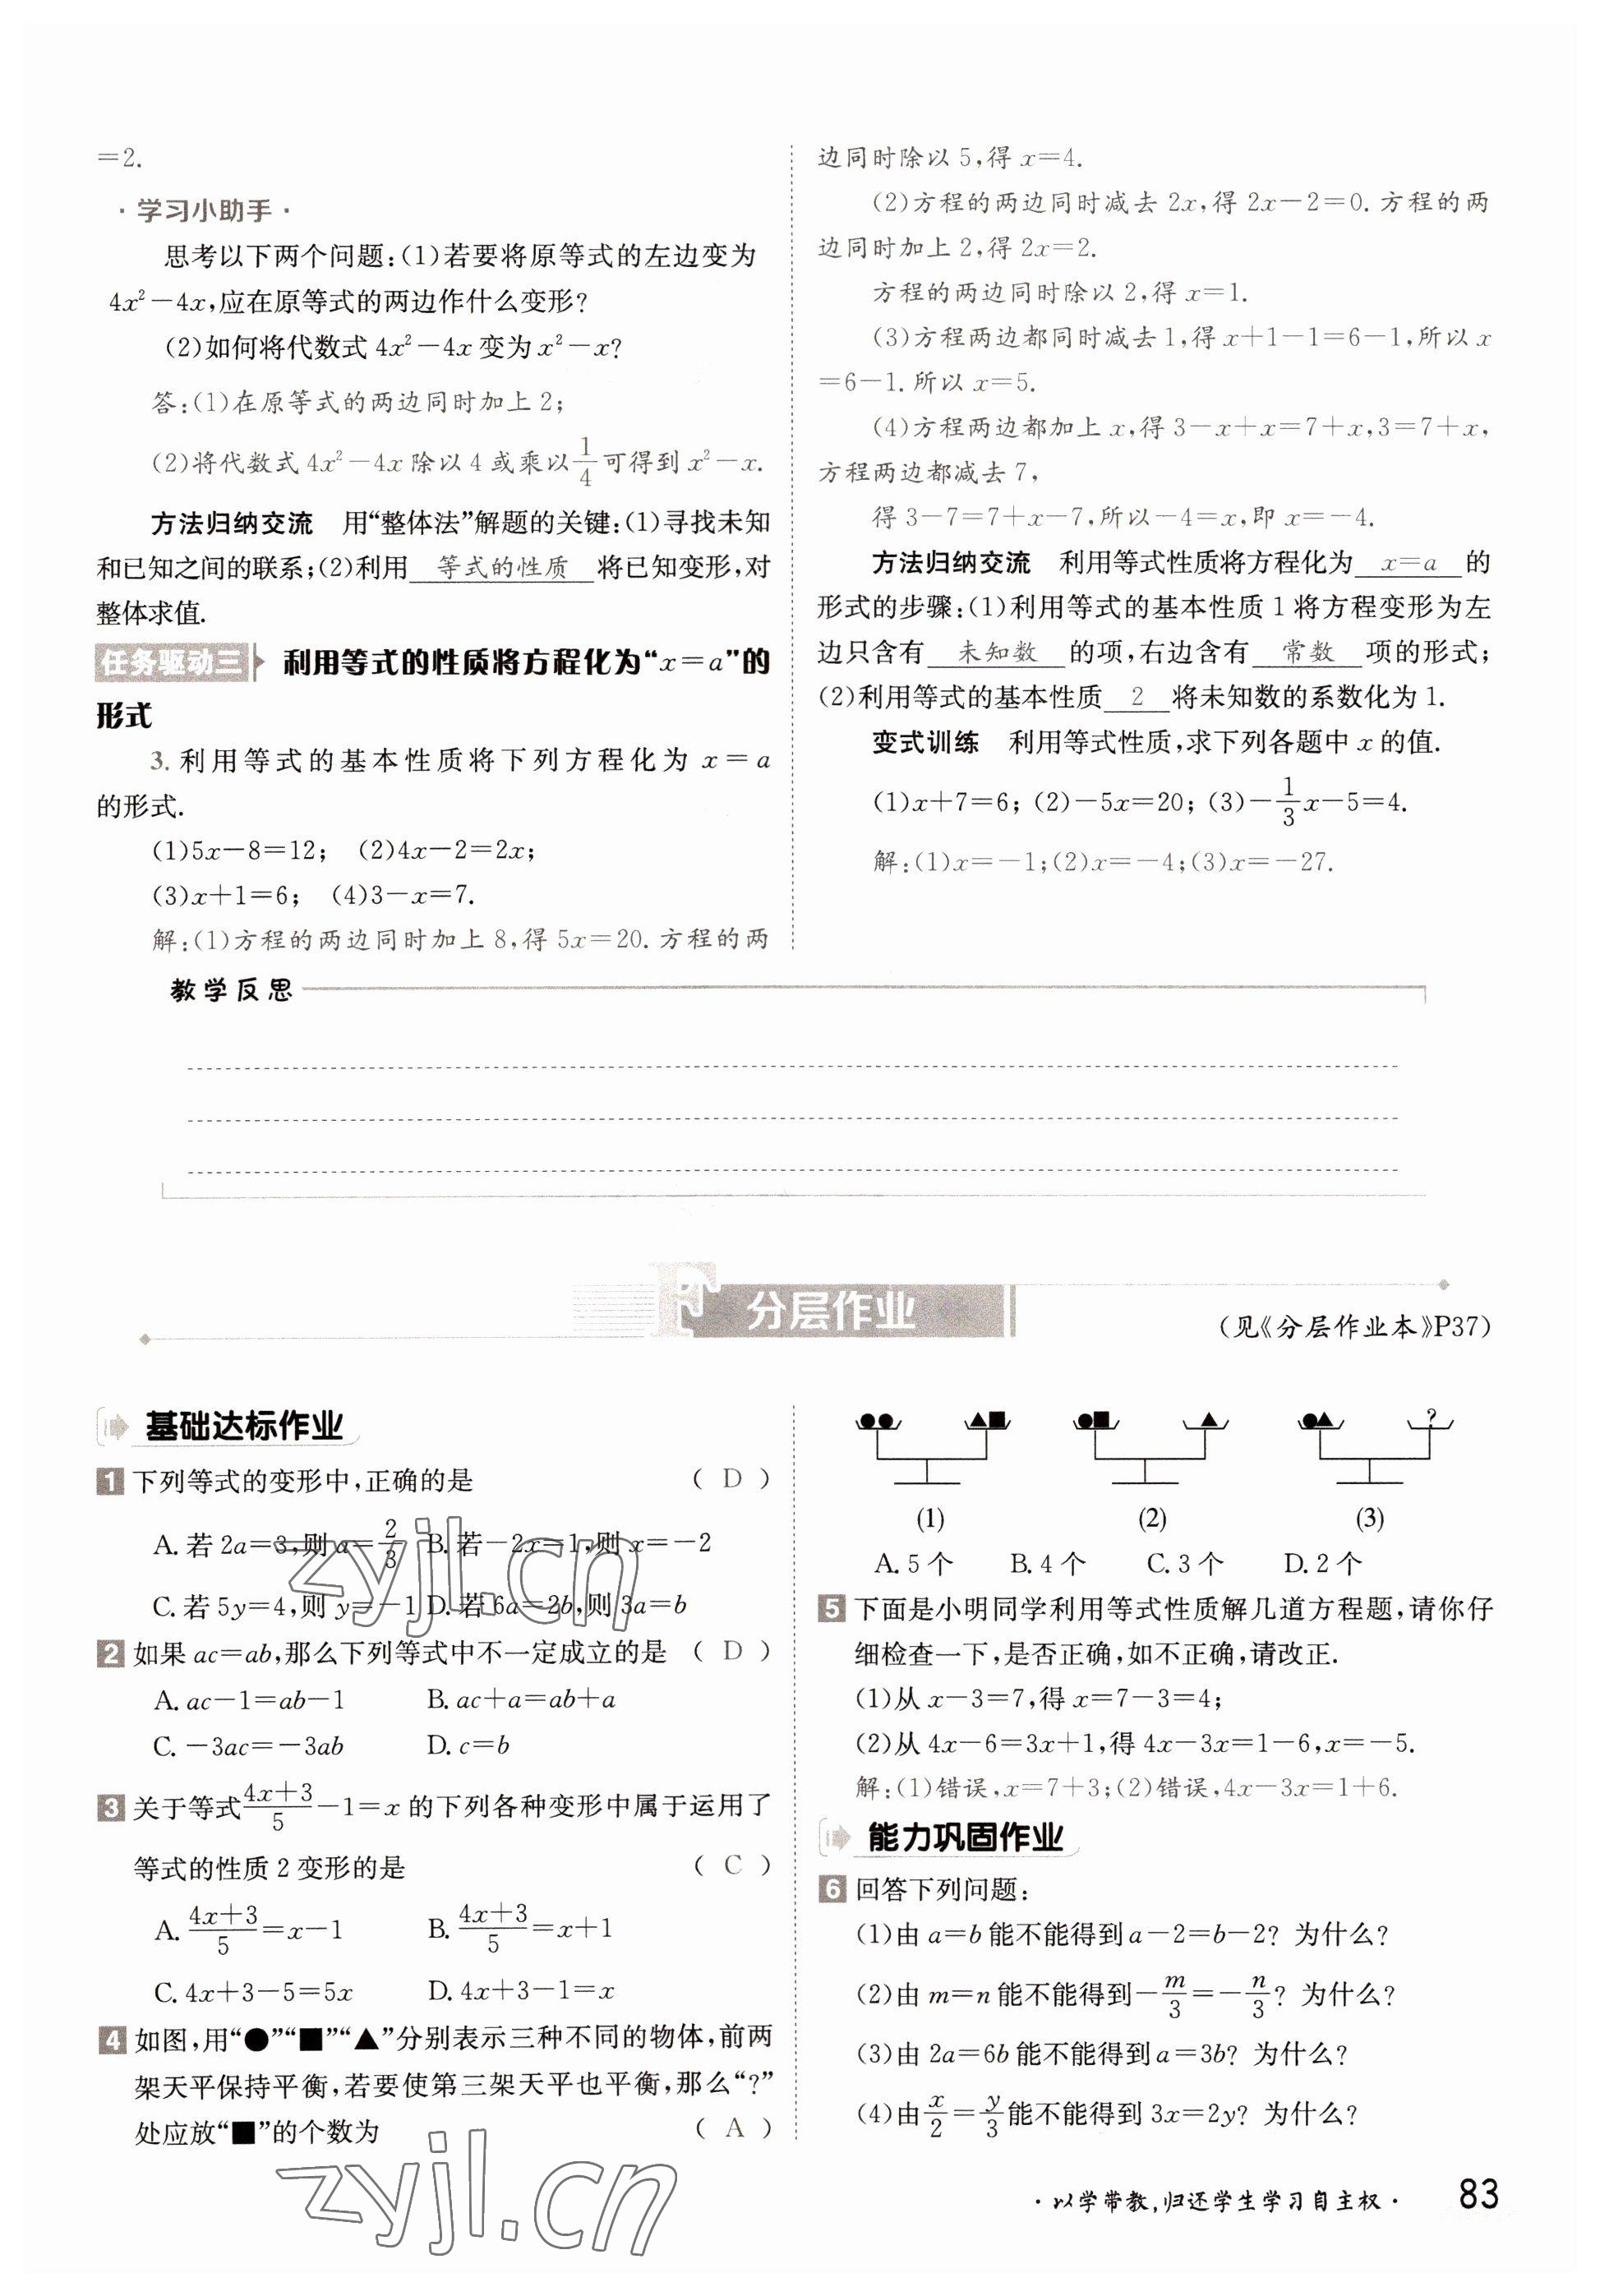 =2.
·学习小助手·
思考以下两个问题:(1)若要将原等式的左边变为
4x²-4x,应在原等式的两边作什么变形?
(2)如何将代数式 4x²-4x 变为 x²-x?
答:(1)在原等式的两边同时加上 2;
(2)将代数式 4x²-4x 除以 4 或乘以 1/4 可得到 x²-x.
方法归纳交流 用“整体法”解题的关键:(1)寻找未知
和已知之间的联系;(2)利用 等式的性质 将已知变形,对
整体求值.
任务驱动三 利用等式的性质将方程化为“x=a”的
形式
3. 利用等式的基本性质将下列方程化为 x=a
的形式.
(1)5x-8=12; (2)4x-2=2x;
(3)x+1=6; (4)3-x=7.
解:(1)方程的两边同时加上 8,得 5x=20. 方程的两
边同时除以 5,得 x=4.
(2)方程的两边同时减去 2x,得 2x-2=0. 方程的两
边同时加上 2,得 2x=2.
方程的两边同时除以 2,得 x=1.
(3)方程两边都同时减去 1,得 x+1-1=6-1,所以 x
=6-1. 所以 x=5.
(4)方程两边都加上 x,得 3-x+x=7+x,3=7+x,
方程两边都减去 7,
得 3-7=7+x-7,所以-4=x,即 x=-4.
方法归纳交流 利用等式性质将方程化为 x=a 的
形式的步骤:(1)利用等式的基本性质 1 将方程变形为左
边只含有 未知数 的项,右边含有 常数 项的形式;
(2)利用等式的基本性质 2 将未知数的系数化为 1.
变式训练 利用等式性质,求下列各题中 x 的值.
(1)x+7=6; (2)-5x=20; (3)-1/3x-5=4.
解:(1)x=-1;(2)x=-4;(3)x=-27.
教学反思
F 分层作业
(见《分层作业本》P37)
基础达标作业
1 下列等式的变形中,正确的是 ( D )
A. 若 2a=3,则 a=2/3 B. 若-2x=1,则 x=-2
C. 若 5y=4,则 y=-1 D. 若 6a=2b,则 3a=b
2 如果 ac=ab,那么下列等式中不一定成立的是 ( D )
A. ac-1=ab-1 B. ac+a=ab+a
C. -3ac=-3ab D. c=b
3 关于等式(4x+3)/5-1=x 的下列各种变形中属于运用了
等式的性质 2 变形的是 ( C )
A. (4x+3)/5=x-1 B. (4x+3)/5=x+1
C. 4x+3-5=5x D. 4x+3-1=x
4 如图,用“●”“■”“▲”分别表示三种不同的物体,前两
架天平保持平衡,若要使第三架天平也平衡,那么“?”
处应放“■”的个数为 ( A )
?
(1) (2) (3)
A. 5 个 B. 4 个 C. 3 个 D. 2 个
5 下面是小明同学利用等式性质解几道方程题,请你仔
细检查一下,是否正确,如不正确,请改正.
(1)从 x-3=7,得 x=7-3=4;
(2)从 4x-6=3x+1,得 4x-3x=1-6,x=-5.
解:(1)错误,x=7+3;(2)错误,4x-3x=1+6.
能力巩固作业
6 回答下列问题:
(1)由 a=b 能不能得到 a-2=b-2? 为什么?
(2)由 m=n 能不能得到-m/3=-n/3? 为什么?
(3)由 2a=6b 能不能得到 a=3b? 为什么?
(4)由 x/2=y/3 能不能得到 3x=2y? 为什么?
·以学带教,归还学生学习自主权· 83
zyjl.cn
zyjl.cn